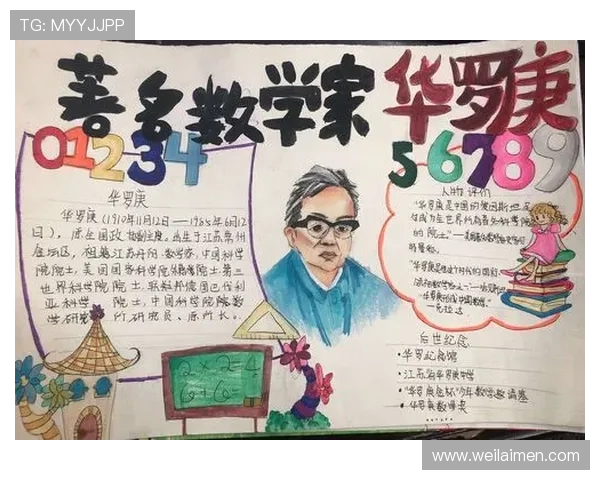 TG: MYYJJPP
著名数学家 华罗庚
01234
56789
华罗庚
华罗庚（1910年11月12日——1985年6月12
日），原全国政协副主席。出生于江苏常州
金坛区，祖籍江苏丹阳。数学家，中国科学
院院士，美国国家科学院外籍院士，第三
世界科学院院士，联邦德国巴伐利
亚科学院院士，中国科学院数
学研究所研究员、原所长。
人物评价
"华罗庚是中国的爱因斯坦,足
够成为全世界所有著名科学院
的院士。"
2×2=4
6+6=
后世纪念
·华罗庚纪念馆
·江苏省华罗庚中学
·"华罗庚金杯"少年数学邀请赛
·华罗庚数学奖
www.weilaimen.com